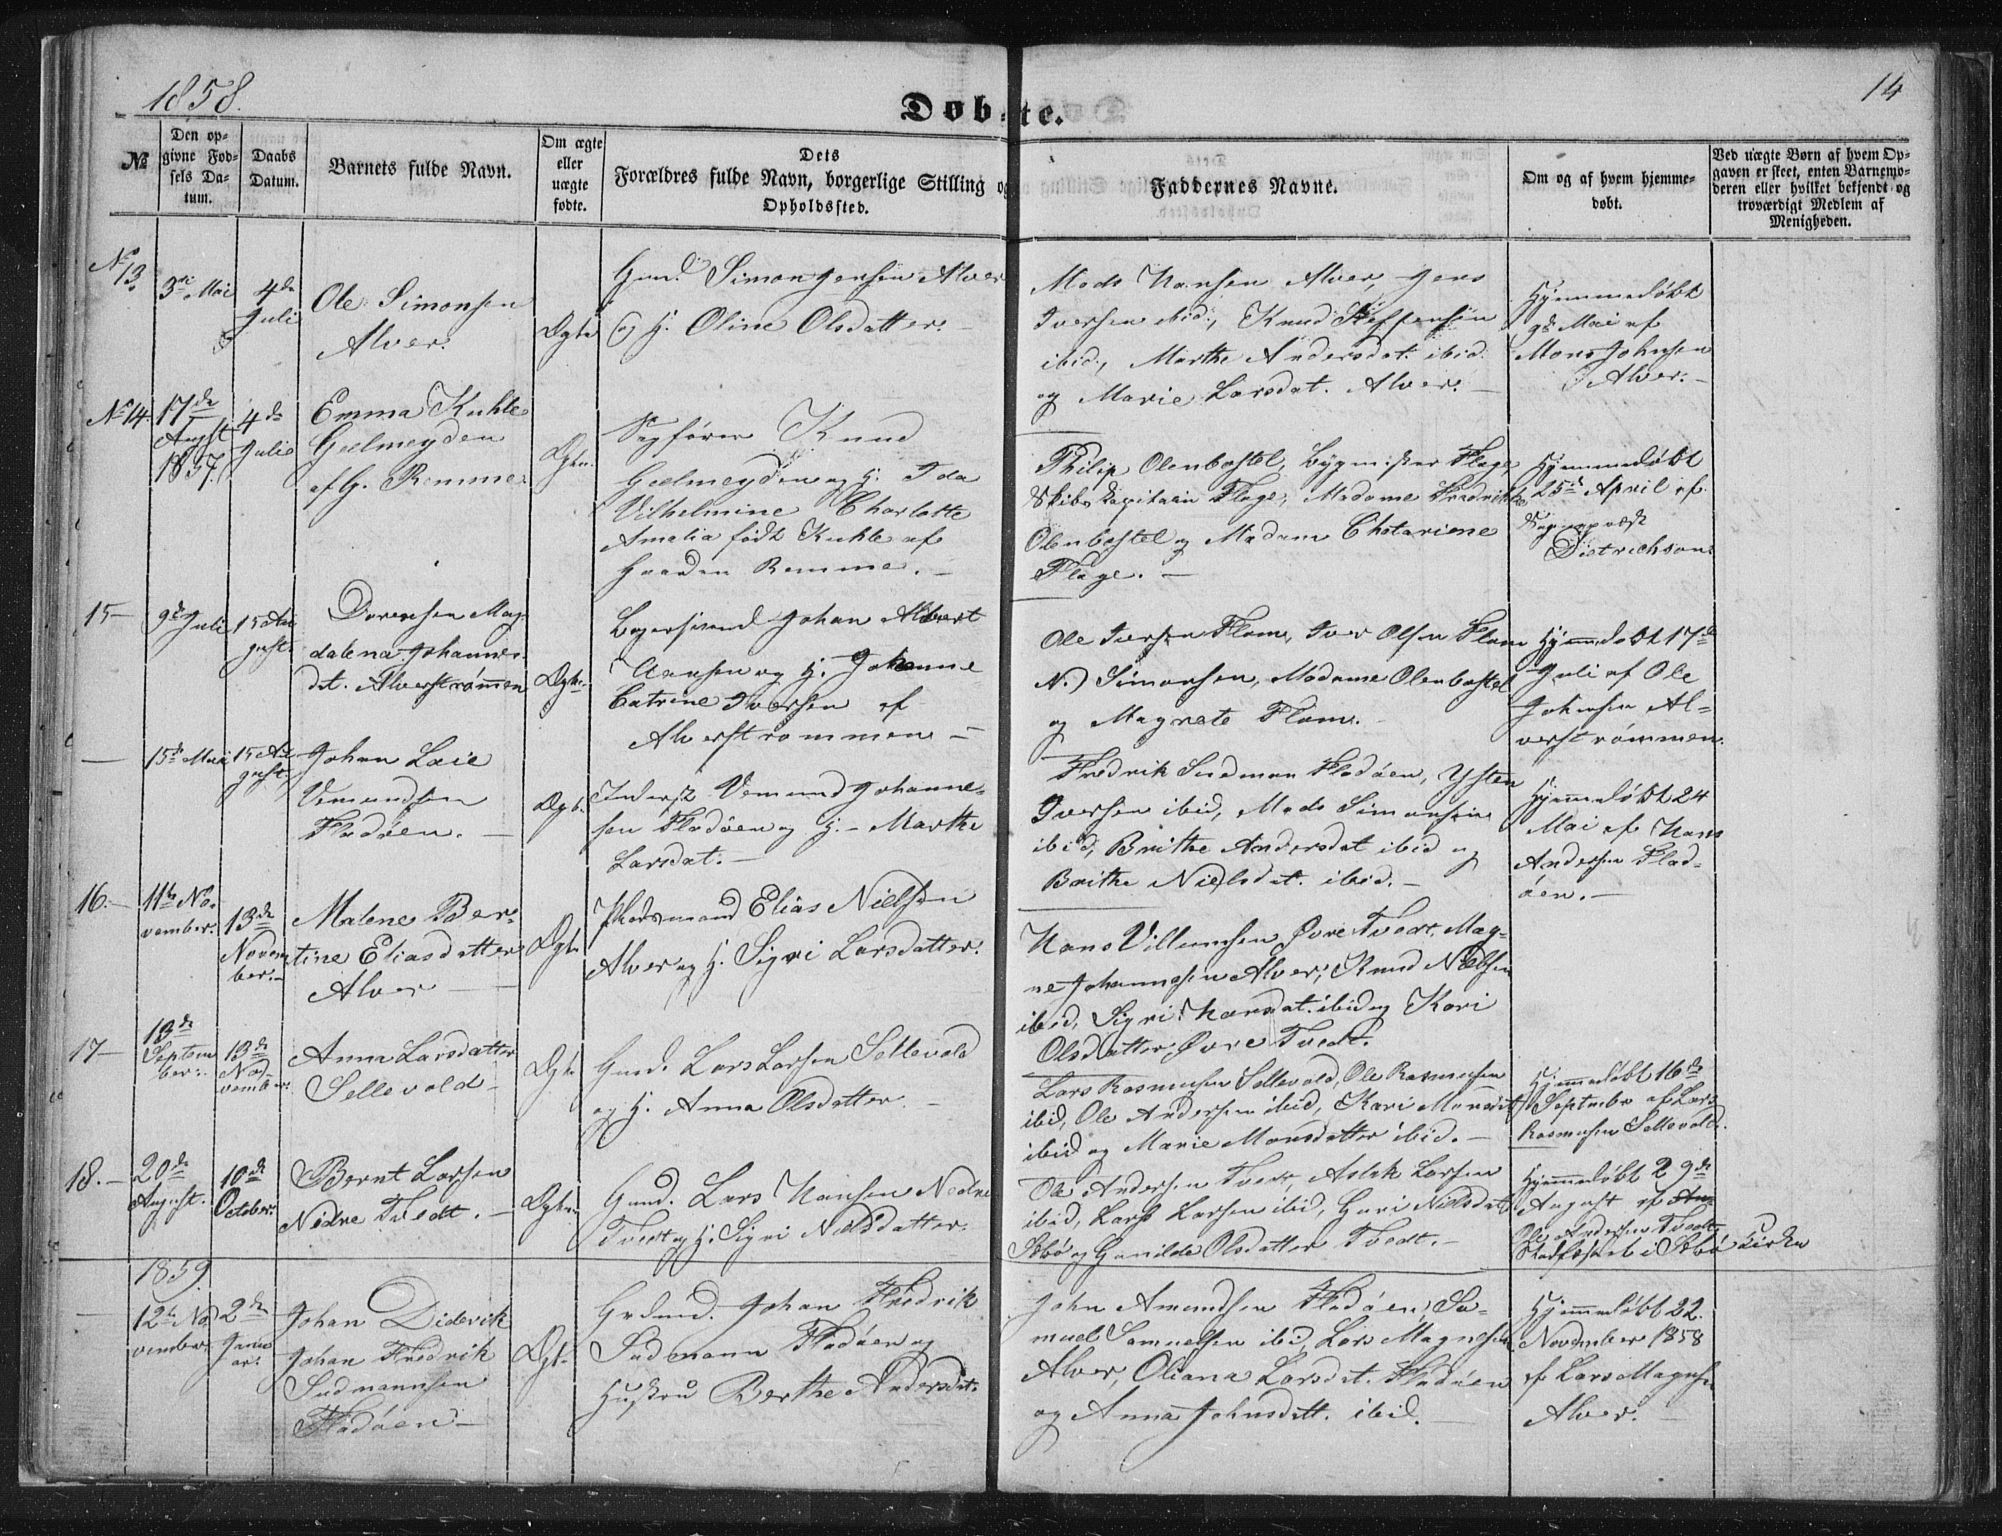 1858.
14
Døbte.
No
Den op-
givne Fød-
sels Da-
tum.
Daabs
Datum.
Barnets fulde Navn.
Om ægte
eller
uægte
fødte.
Dets
Forældres fulde Navn, borgerlige Stilling og
Opholdssted.
Faddernes Navne.
Om og af hvem hjemme-
døbt.
Ved uægte Børn af hvem Op-
gaven er skeet, enten Barnemo-
deren eller hvilket bekjendt og
troværdigt Medlem af
Menigheden.
No 13.
3die Mai
4de
Juli
Ole Simonsen
Alver.
Ægte
Gmd. Simon Jensen Alver
og H. Oline Olsdatter.
Mads Hansen Alver, Jens
Iversen ibid., Knud Steffensen
ibid., Marthe Andersdat. ibid.
og Marie Larsdat. Alver.
Hjemmedøbt
9de Mai af
Mons Johnsen
Alver.
No 14.
17de
Augst
1857.
4de
Juli
Emma Kuhle
Geelmeyden
af G. Remme
Ægte.
Sagfører Knud
Geelmeyden og H. Ida
Vilhelmine Charlotte
Amalia født Kuhle af
Gaarden Remme.
Philip Olenbostel, Bygmester Flage
Skibskapitain Flage, Madame Fredrikke
Olenbostel og Madam Chatarine
Flage.
Hjemmedøbt
25de April af
Sognepræst
Dietrichson.
15
9de Juli
15 Au
gust.
Dorensen Mag-
dalena Johannes-
dt. Alverstrømmen
Ægte.
Logerende Johan Albert
Hansen og H. Johanne
Catrine Iversen af
Alverstrømmen
Ole Iversen Flam, Iver Olsen Flam
N. Simonsen, Madame Olenbostel
og Magrete Flam.
Hjemmedøbt 17de
Juli af Ole
Johnsen Al-
verstrømmen.
15de Mai
15 Au
gust
Johan Laie
Vemundsen
Fladøen.
Ægte.
Inderst Vemund Johanne-
sen Fladøen og H. Marthe
Larsdat.
Fredrik Sudman Fladøen, Ysten
Iversen ibid, Mads Simonsen
ibid, Brithe Andersdat ibid og
Brithe Nielsdat. ibid.
Hjemmedøbt 24
Mai af Hans
Andersen Flad-
øen.
16.
11te No-
vember.
13de
Novem
ber.
Malene Ber-
tine Eliasdatter
Alver
Ægte
Pladsmand Elias Nielsen
Alver og H. Sigri Larsdatter.
Hans Villumsen Øvre Tvedt, Mag-
ne Johannesen Alver, Knud Nielsen
ibid, Sigri Hansdat. ibid og Kari
Olsdatter Øvre Tvedt.
17
13de
Septem
ber.
13de
No-
vember.
Anna Larsdatter
Sellevold
Ægte.
Gmd. Lars Larsen Sellevold
og H. Anna Olsdatter.
Lars Rasmusen Sellevold, Ole Rasmusen
ibid, Ole Andersen ibid, Kari Monsdat
ibid og Marie Monsdatter ibid.
Hjemmedøbt 16de
September af Lars
Rasmusen Sellevold.
18.
20de
August.
10de
October.
Bernt Larsen
Nedre Tvedt.
Ægte.
Gmd. Lars Hansen Nedre
Tvedt og H. Sigri Nielsdatter.
Ole Andersen Tvedt, Aslak Larsen
ibid, Lars Larsen ibid, Guri Nielsdat
Sæbø og Gunilde Olsdatter Tvedt.
Hjemmedøbt 29de
August af An
Ole Andersen Tvedt
Stadfæstet i Sæbø Kirke
1859.
12te No
vember
2den
Janu
ar.
Johan Diderik
Johan Fredrik
Sudmannsen
Fladøen
Ægte.
Grdmd. Johan Fredrik
Sudmann Fladøen og
Hustru Berthe Andersdat.
John Amundsen Fladøen, Sa-
muel Samuelsen ibid, Lars Magnesen
Alver, Oliana Larsdt. Fladøen
og Anna Johnsdatt. ibid.
Hjemmedøbt 22.
November 1858
af Lars Magnesen
Alver.